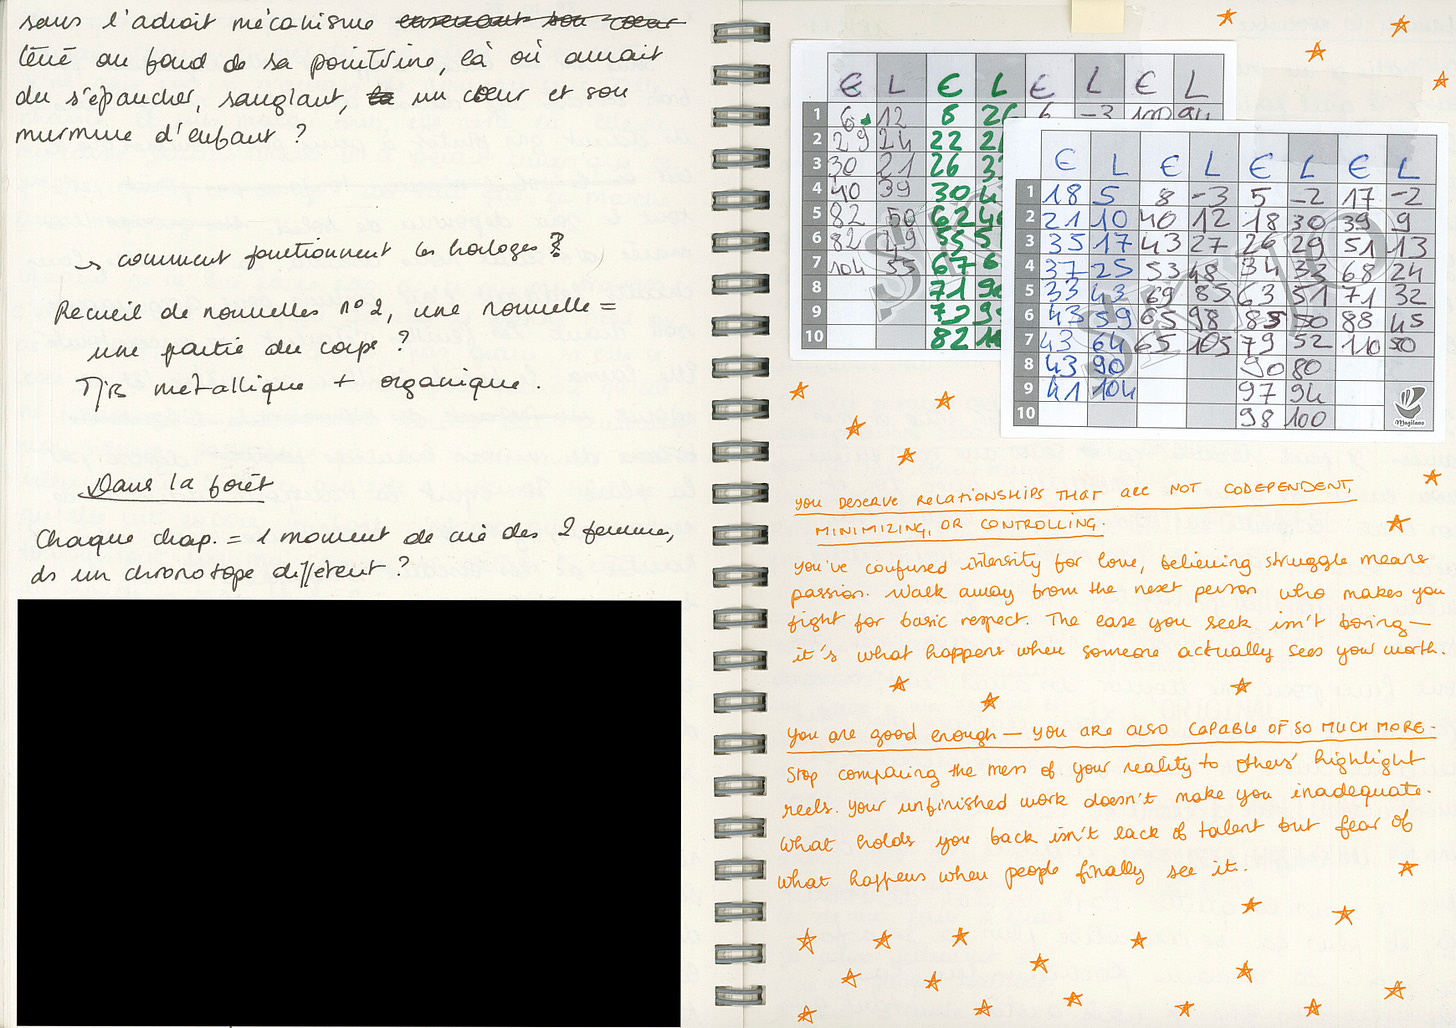 sous l'adroit mécanisme
au fond de sa poinitrine, là où aurait
du s'épancher, sanglant, un cœur et son
murmure d'enfant ?
→ comment fonctionnent les horloges ?
Recueil de nouvelles n° 2, une nouvelle =
une partie du corps ?
Tjrs métallique + organique.
Dans la forêt
Chaque chap. = 1 moment de vie des 2 femmes,
ds un chronotope différent ?
E L E L E L E L
1 6 12 8 26 6 -3 100 94
2 29 24 22
3 30 21 26
4 40 39 30
5 82 50 62
6 82 49 55
7 104 55 67
8 71
9
10 82
E L E L E L E L
1 18 5 8 -3 5 -2 17 -2
2 21 10 40 12 18 30 39 9
3 35 17 43 27 26 29 51 13
4 37 25 53 48 34 33 68 24
5 33 43 69 85 63 51 71 32
6 43 59 65 98 85 50 88 45
7 43 64 65 105 79 52 110 50
8 43 90 90 80
9 41 104 97 94
10 98 100
Magilano
YOU DESERVE RELATIONSHIPS THAT ARE NOT CODEPENDENT,
MINIMIZING, OR CONTROLLING.
You've confused intensity for love, believing struggle means
passion. Walk away from the next person who makes you
fight for basic respect. The ease you seek isn't boring—
it's what happens when someone actually sees your worth.
You are good enough — you are also CAPABLE OF SO MUCH MORE.
Stop comparing the mess of your reality to others' highlight
reels. Your unfinished work doesn't make you inadequate.
What holds you back isn't lack of talent but fear of
what happens when people finally see it.